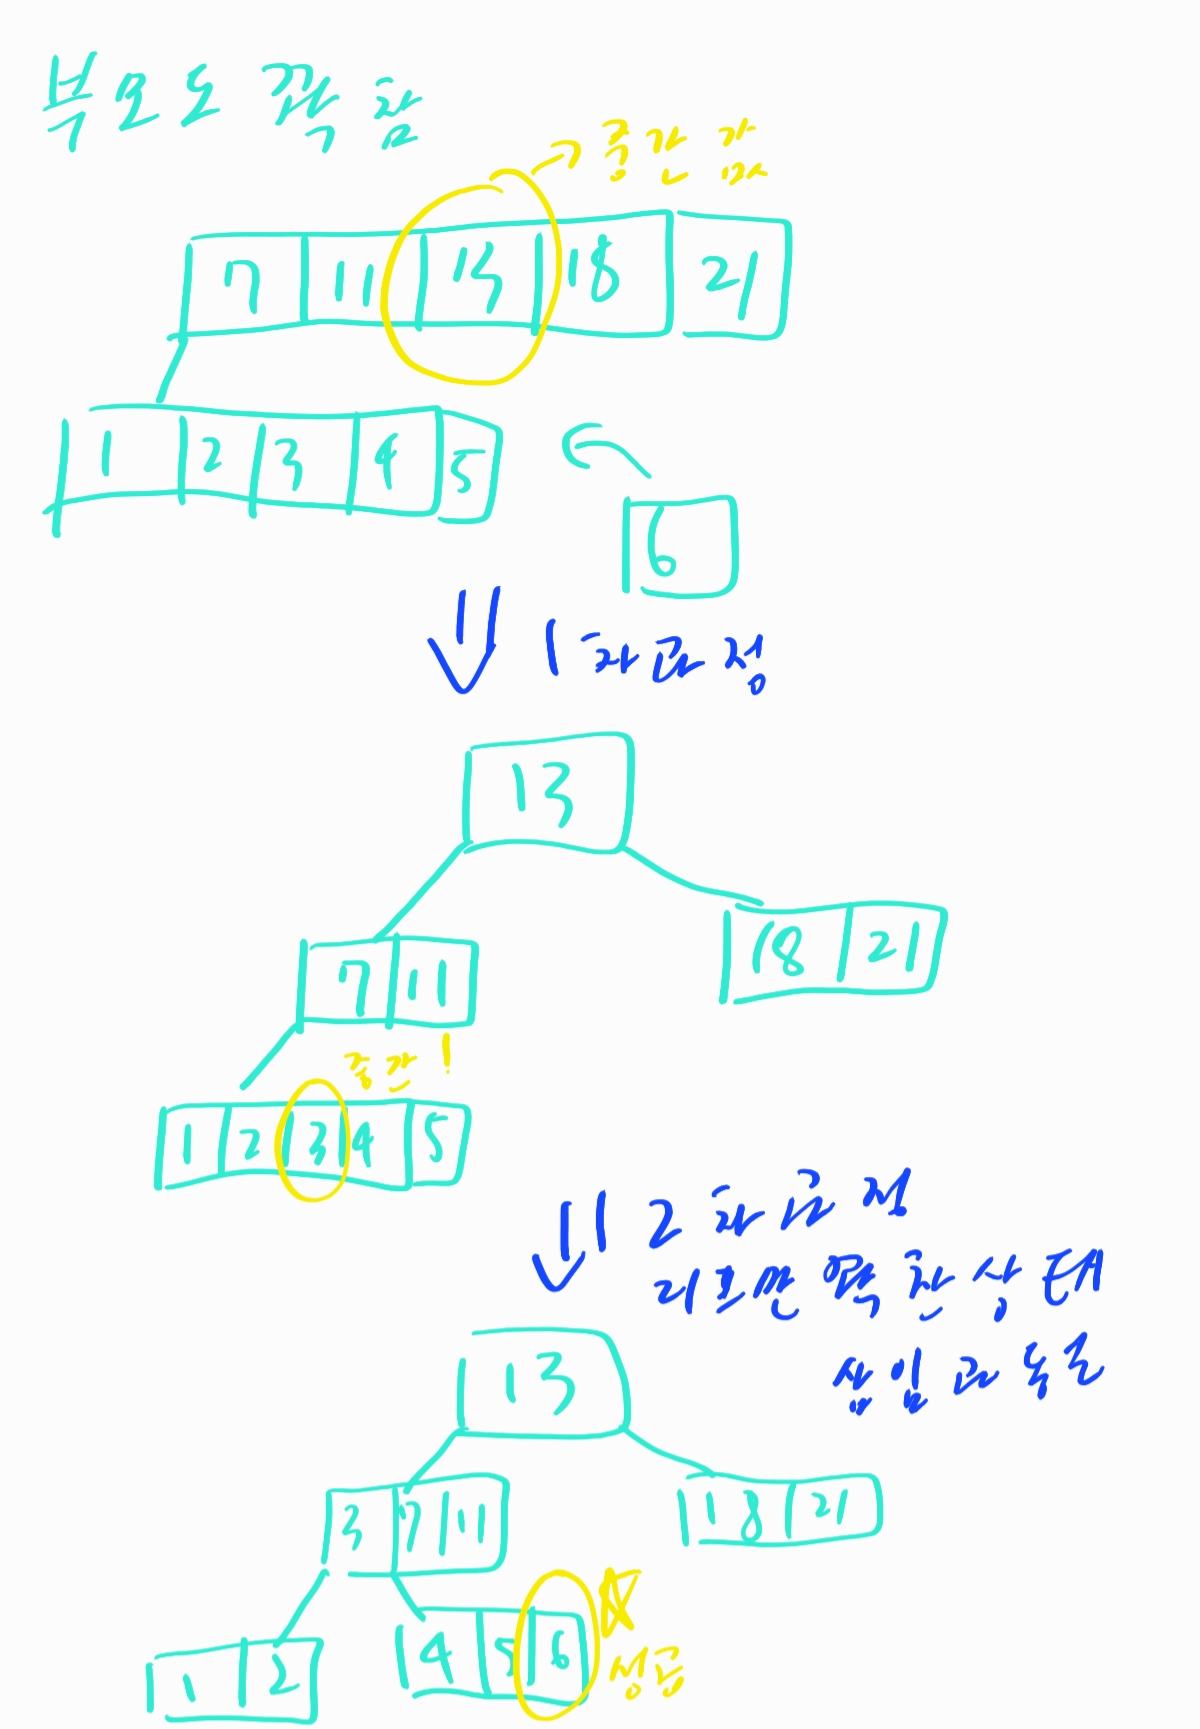 부모도 꽉 참
→ 중간 값
7 11 13 18 21
1 2 3 4 5
6
1차 과정
13
7 11 18 21
중간!
1 2 3 4 5
2차 과정
리프만 꽉 찬 상태
삽입과 동일
13
3 7 11 18 21
1 2 4 5 6
성공